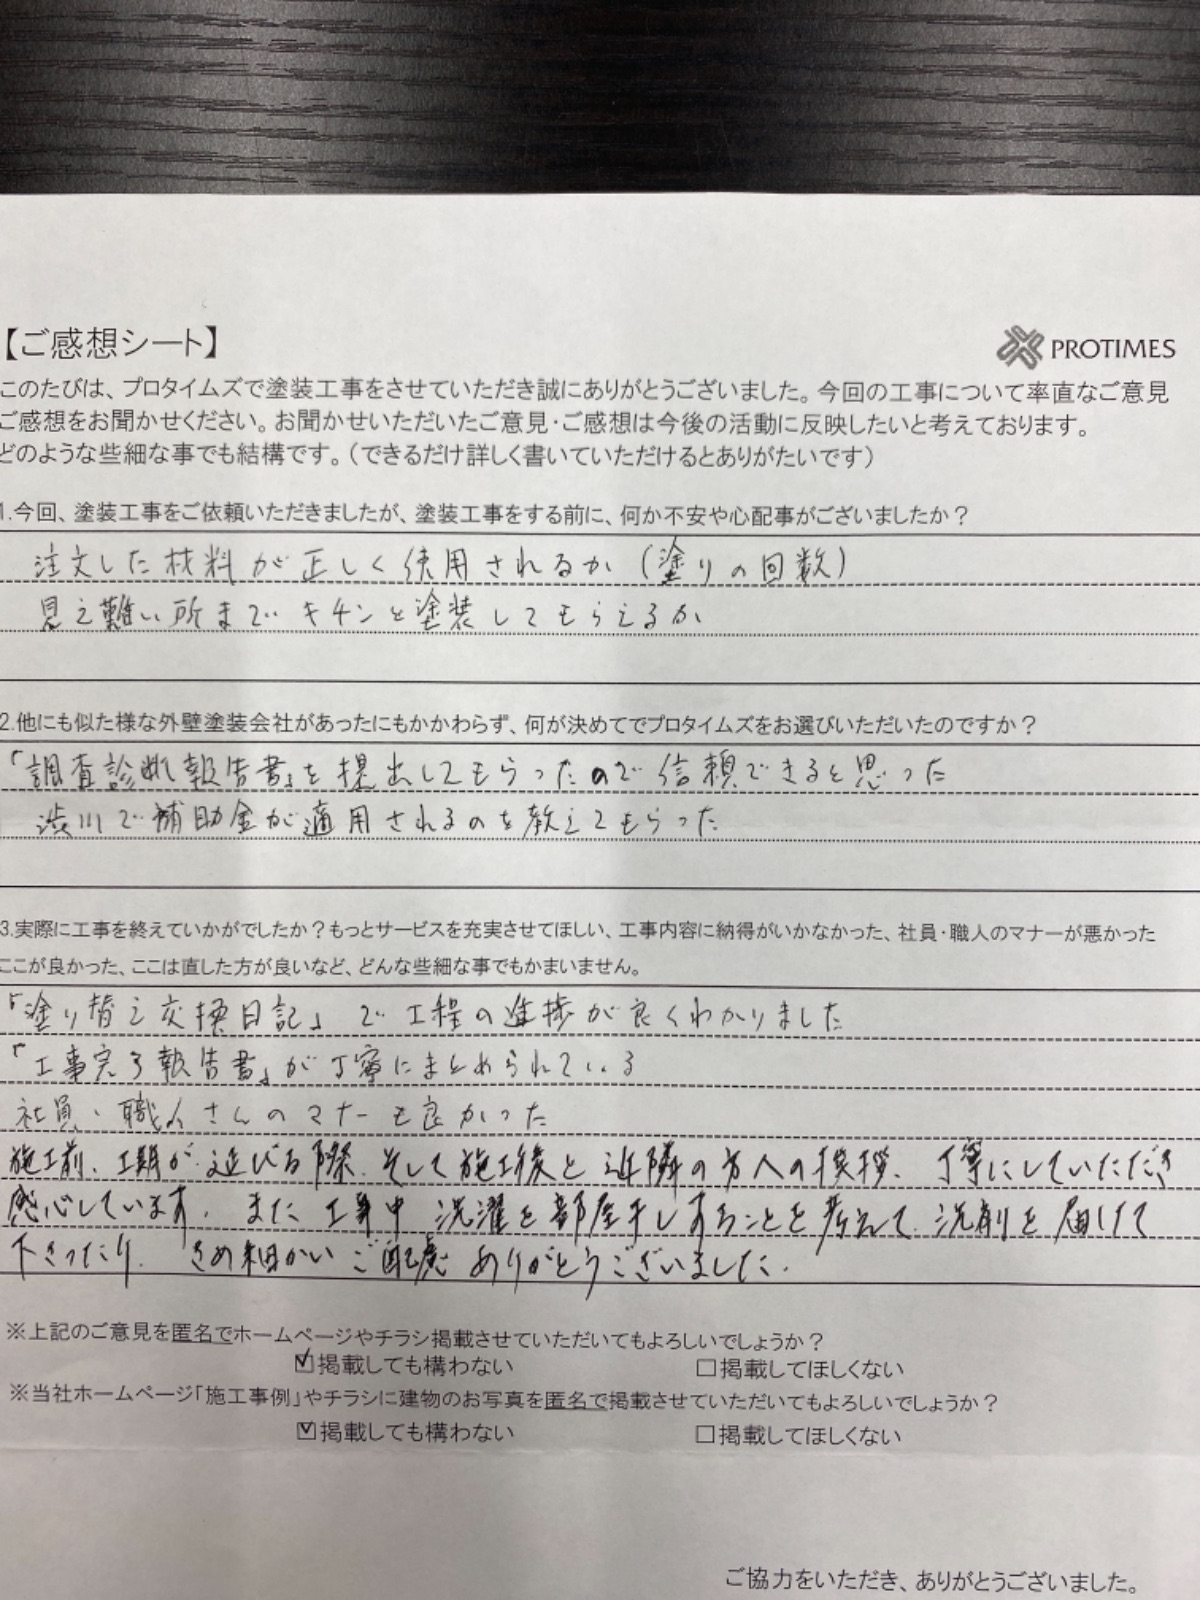 【ご感想シート】
PROTIMES
このたびは、プロタイムズで塗装工事をさせていただき誠にありがとうございました。今回の工事について率直なご意見
ご感想をお聞かせください。お聞かせいただいたご意見・ご感想は今後の活動に反映したいと考えております。
どのような些細な事でも結構です。（できるだけ詳しく書いていただけるとありがたいです）
1.今回、塗装工事をご依頼いただきましたが、塗装工事をする前に、何か不安や心配事がございましたか？
注文した材料が正しく使用されるか（塗りの回数）
見え難い所までキチンと塗装してもらえるか
2.他にも似た様な外壁塗装会社があったにもかかわらず、何が決めてでプロタイムズをお選びいただいたのですか？
「調査診断報告書」を提出してもらったので信頼できると思った
渋川で補助金が適用されるのを教えてもらった
3.実際に工事を終えていかがでしたか？もっとサービスを充実させてほしい、工事内容に納得がいかなかった、社員・職人のマナーが悪かった
ここが良かった、ここは直した方が良いなど、どんな些細な事でもかまいません。
「塗り替え交換日記」で工程の進捗が良くわかりました
「工事完了報告書」が丁寧にまとめられている
社員、職人さんのマナーも良かった
施工前、工期が延びる際、そして施工後と近隣の方への挨拶、丁寧にしていただき
感心しています。また工事中 洗濯を部屋干しすることを考えて、洗剤を届けて
下さったり、きめ細かいご配慮ありがとうございました。
※上記のご意見を匿名でホームページやチラシ掲載させていただいてもよろしいでしょうか？
☑掲載しても構わない □掲載してほしくない
※当社ホームページ「施工事例」やチラシに建物のお写真を匿名で掲載させていただいてもよろしいでしょうか？
☑掲載しても構わない □掲載してほしくない
ご協力をいただき、ありがとうございました。